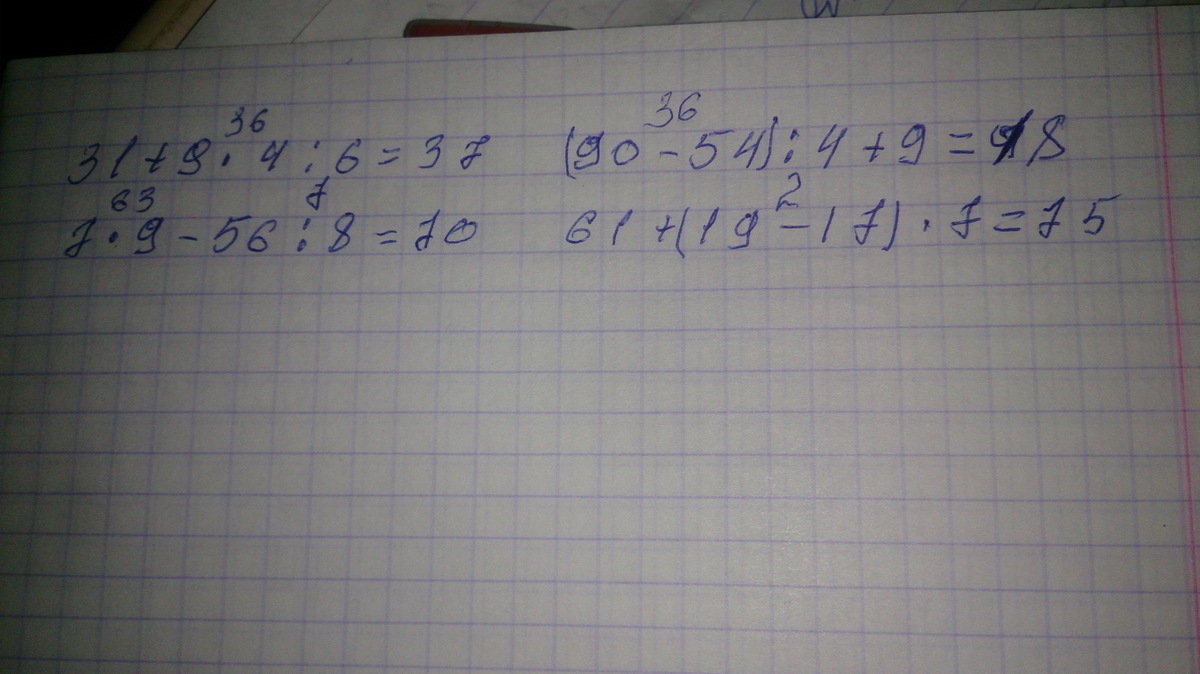 36 36
31+9·4:6=37 (90-54):4+9=18
63 7 2
7·9-56:8=70 61+(19-17)·7=75